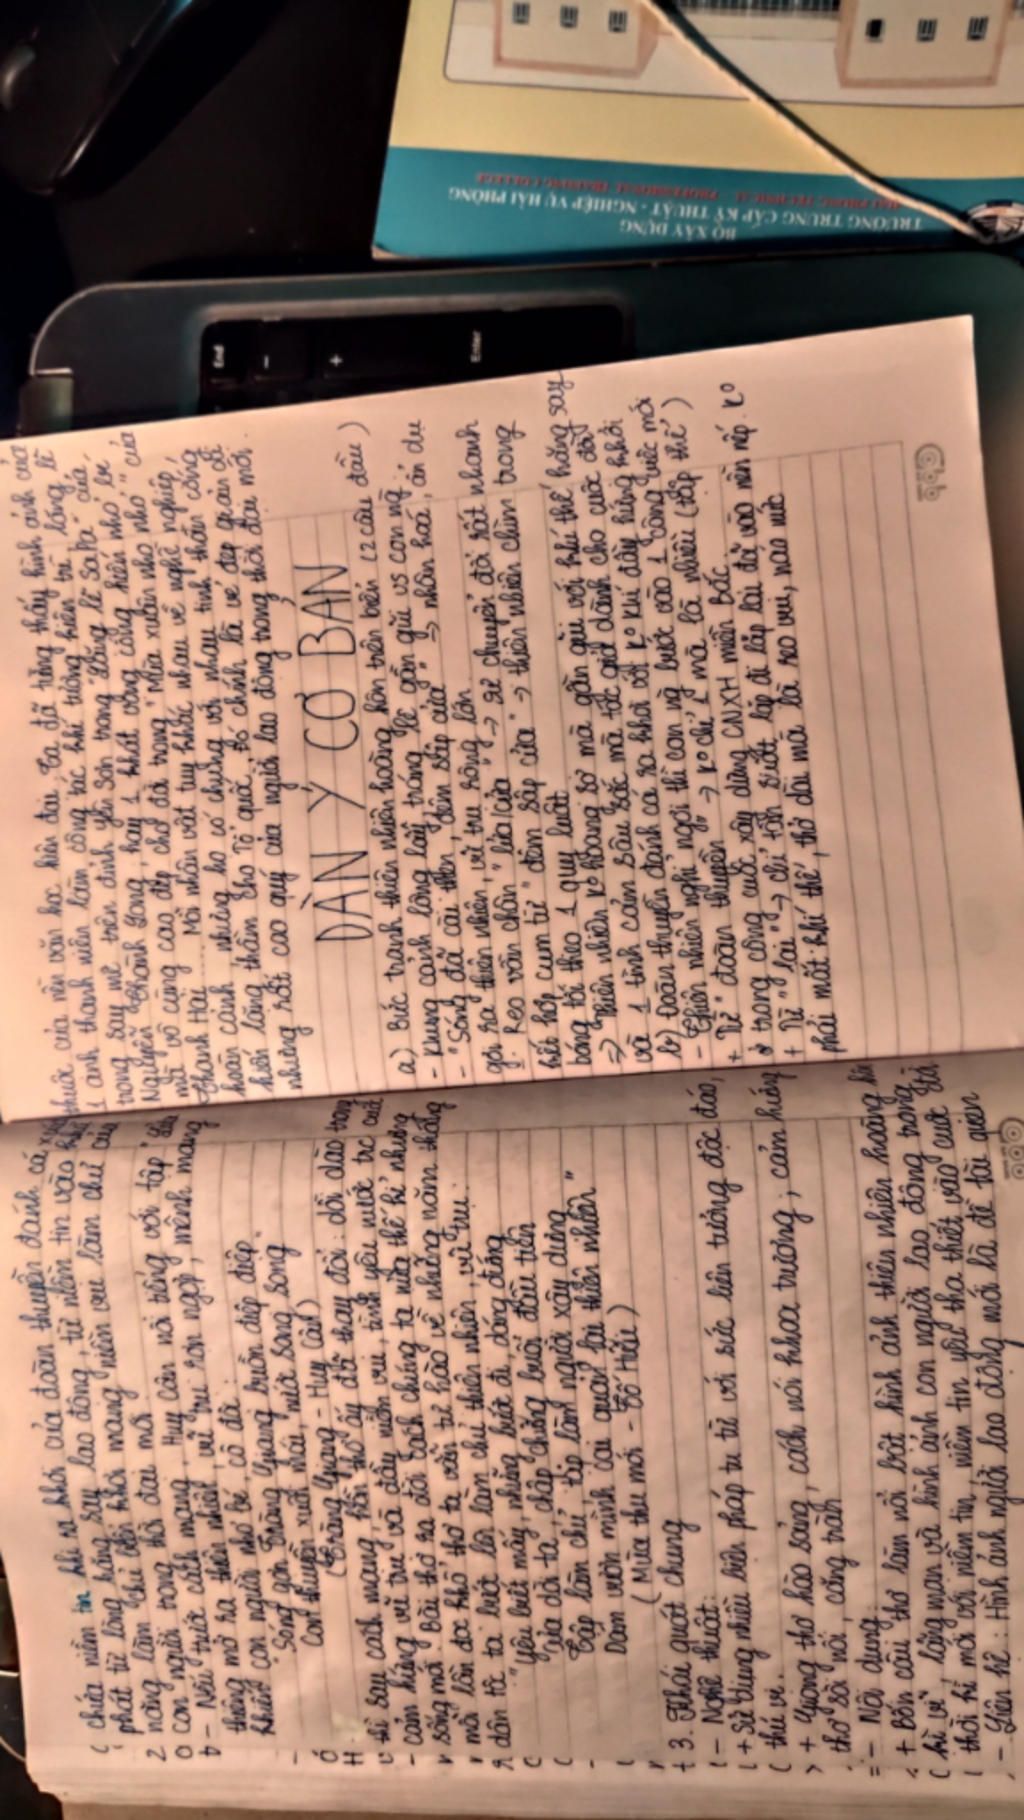 chứa niềm tin khi ra khơi của đoàn thuyền đánh cá, xuất
phát từ lòng hăng say lao động, từ niềm tin vào
năng làm chủ biển khơi mang niềm vui làm chủ của
2 con người trong thời đại mới
- Nếu trước cách mạng, Huy Cận nổi tiếng với tập
thiêng mở ra thiên nhiên, vũ trụ rợn ngợp, mênh mang
khiến con người nhỏ bé, cô đơn
"Sóng gợn Tràng Giang buồn điệp điệp
Con thuyền xuôi mái, nước song song"
(Tràng Giang - Huy Cận)
thì sau cách mạng, hồn thơ ấy đã thay đổi: dồi dào trong
cảm hứng vũ trụ và đầy niềm vui, tình yêu nước trc cuộc
sống mới. Bài thơ ra đời cách chúng ta nửa thế kỉ nhưng
mỗi lần đọc khổ thơ ta vẫn tự hào về những năm tháng
dân tộc ta bước lên làm chủ thiên nhiên, vũ trụ:
"Yêu biết mấy, những bước đi, dáng đứng
Của đời ta, chập chững buổi đầu tiên
Tập làm chủ, tập làm người xây dựng
Dám vươn mình cai quản lại thiên nhiên"
(Mùa thu mới - Tố Hữu)
3. Khái quát chung
- Nghệ thuật:
+ Sử dụng nhiều biện pháp tu từ với sức liên tưởng độc đáo,
thú vị.
+ Giọng thơ hào sảng, cách nói khoa trương, cảm hứng
thơ sôi nổi, căng tràn
- Nội dung
+ Bốn câu thơ làm nổi bật hình ảnh thiên nhiên hoàng hôn
kì vĩ, lãng mạn và hình ảnh con người lao động trong
thời kì mới với niềm tin, niềm tin yêu tha thiết vào cuộc đời
- Liên hệ: Hình ảnh người lao động mới là đề tài quen
thuộc của nền văn học hiện đại, ta đã từng thấy hình ảnh của
1 anh thanh niên làm công tác khí tượng kiêm vật lí, lặng lẽ
trong say mê trên đỉnh yên Sơn trong "Lặng lẽ Sa Pa" của
Nguyễn Thành Long, hay 1 khát vọng cống hiến nhỏ bé
mà vô cùng cao đẹp, chờ đợi trong "Mùa xuân nho nhỏ" của
Thanh Hải ... Mỗi nhân vật tuy khác nhau về nghề nghiệp
hoàn cảnh nhưng họ có chung với nhau tinh thần cống
hiến lặng thầm cho Tổ quốc, đó chính là vẻ đẹp giản dị
nhưng rất cao quý của người lao động trong thời đại mới.
DÀN Ý CƠ BẢN
a) Bức tranh thiên nhiên hoàng hôn trên biển (2 câu đầu)
- Khung cảnh lộng lẫy, tráng lệ, gần gũi vs con ng
- "Sóng đã cài then, đêm sập cửa" => nhân hoá, ẩn dụ
gợi ra thiên nhiên, vũ trụ rộng lớn
- Reo vần chân "lửa/cửa" -> sự chuyển đổi rất nhanh
kết hợp cụm từ "đêm sập cửa" -> thiên nhiên chìm trong
bóng tối theo 1 quy luật
=> Thiên nhiên k° hoang sơ mà gần gũi với khí thế hăng say
và 1 tình cảm sâu sắc mà tác giả dành cho cuộc đời
b) Đoàn thuyền đánh cá ra khơi với k° khí đầy hứng khởi
- Thiên nhiên nghỉ ngơi thì con ng bước vào 1 công việc mới
+ Từ "đoàn thuyền" -> k° chỉ 1 mà là nhiều (tập thể)
trong công cuộc xây dựng CNXH miền Bắc.
+ Từ "lại" -> chỉ tần suất lặp đi lặp lại đã vào nền nếp. k°
phải mất khí thế, thở dài mà là reo vui, náo nức
Club
End
-
+
Enter
BỘ XÂY DỰNG
TRƯỜNG TRUNG CẤP KỸ THUẬT - NGHIỆP VỤ HẢI PHÒNG
HAI PHONG TECHNICAL PROFESSIONAL TRAINING COLLEGE